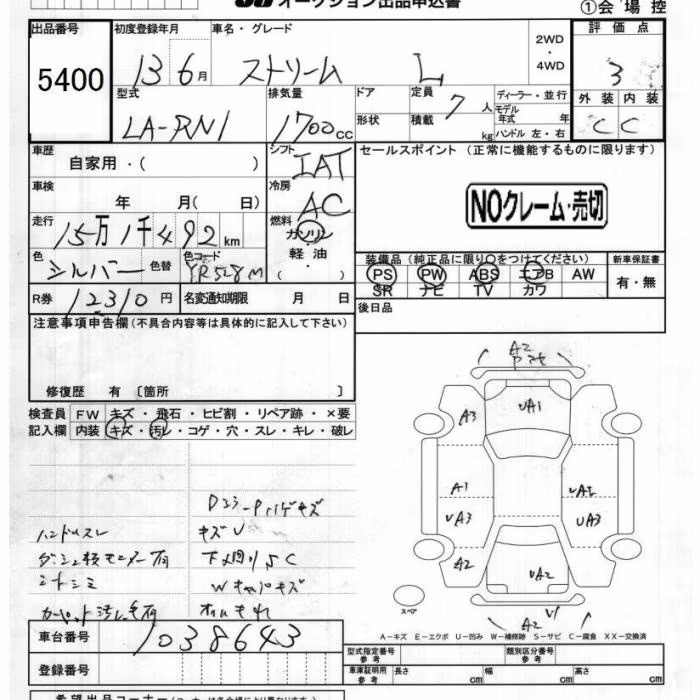 オークション出品申込書
①会場控
出品番号 初度登録年月 車名・グレード 2WD・4WD 評価点
5400 13 6月 ストリーム L 3
型式 排気量 ドア 定員 7人 ディーラー・並行 外装 内装
LA-RN1 1700cc 形状 積載 kg モデル年式 年 ハンドル 左・右 C C
車歴 シフト IAT セールスポイント (正常に機能するものに限ります)
自家用・( )
車検 冷房 AC
年 月( 日) NOクレーム・売切
走行 燃料 ガソリン
15万1千492km 軽油
色 シルバー 色替 色コード YR528M ( )
装備品(純正品に限り○をつけてください) 新車保証書
PS PW ABS エアB AW 有・無
SR ナビ TV カワ
R券 12310円 名変通知期限 月 日 後日品
注意事項申告欄(不具合内容等は具体的に記入して下さい)
修復歴 有 〔箇所 〕
検査員 FW キズ・飛石・ヒビ割・リペア跡・×要
記入欄 内装 キズ・汚レ・コゲ・穴・スレ・キレ・破レ
ハンドルスレ キズU
下メ回りSC
シートシミ Wキャパキズ
オイルもれ
A2
UA1
A3
A1
UA3 UA3
A2 UA2
スペア
A2
A-キズ E-エクボ U-凹み W-補修跡 S-サビ C-腐食 XX-交換済
車台番号 1038643
登録番号
型式指定番号 参考 類別区分番号 参考
車庫証明用 参考 長さ cm 幅 cm 高さ cm
希望出品コーナー